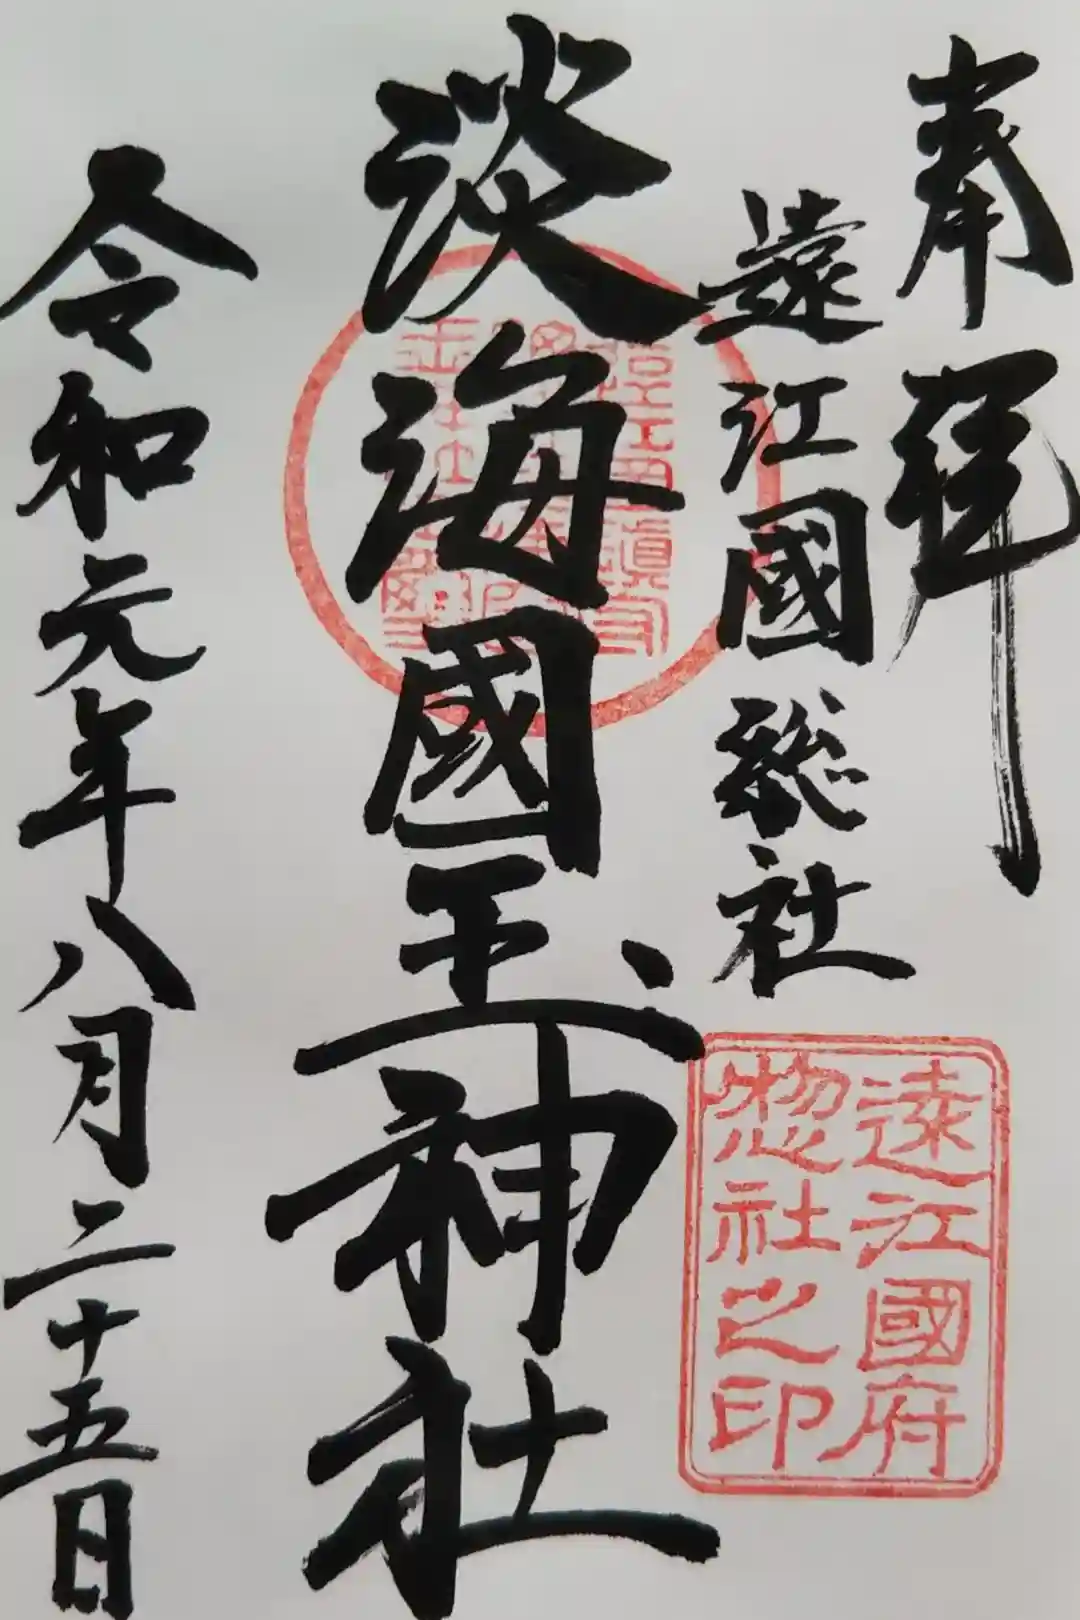 奉拝
遠江國総社
遠江國府
惣社之印
淡海國玉神社
令和元年八月二十五日